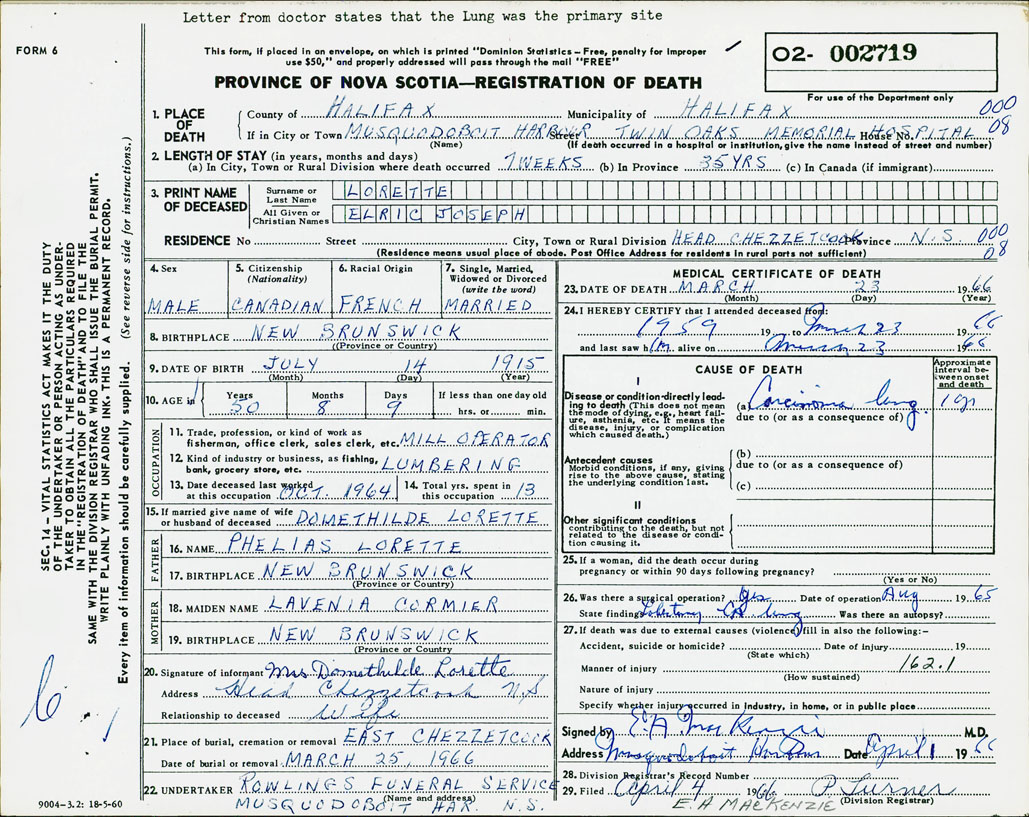 Letter from doctor states that the Lung was the primary site
FORM 6
This form, if placed in an envelope, on which is printed "Dominion Statistics – Free, penalty for improper
use $50," and properly addressed will pass through the mail "FREE"
PROVINCE OF NOVA SCOTIA—REGISTRATION OF DEATH
02- 002719
For use of the Department only
SEC. 14 – VITAL STATISTICS ACT MAKES IT THE DUTY
OF THE UNDERTAKER OR PERSON ACTING AS UNDER-
TAKER TO OBTAIN ALL THE PARTICULARS REQUIRED
IN THE "REGISTRATION OF DEATH" AND TO FILE THE
SAME WITH THE DIVISION REGISTRAR WHO SHALL ISSUE THE BURIAL PERMIT.
WRITE PLAINLY WITH UNFADING INK. THIS IS A PERMANENT RECORD.
Every item of information should be carefully supplied. (See reverse side for instructions.)
1. PLACE OF DEATH
County of HALIFAX Municipality of HALIFAX 000
If in City or Town MUSQUODOBOIT HARBOUR Street TWIN OAKS MEMORIAL House No. HOSPITAL 08
(Name) (If death occurred in a hospital or institution, give the name instead of street and number)
2. LENGTH OF STAY (in years, months and days)
(a) In City, Town or Rural Division where death occurred 7 WEEKS (b) In Province 35 YRS (c) In Canada (if immigrant)
3. PRINT NAME OF DECEASED
Surname or Last Name LORETTE
All Given or Christian Names ELRIC JOSEPH
RESIDENCE No Street City, Town or Rural Division HEAD CHEZZETCOOK Province N.S. 000
(Residence means usual place of abode. Post Office Address for residents in rural parts not sufficient) 08
4. Sex MALE
5. Citizenship (Nationality) CANADIAN
6. Racial Origin FRENCH
7. Single, Married, Widowed or Divorced (write the word) MARRIED
8. BIRTHPLACE NEW BRUNSWICK
(Province or Country)
9. DATE OF BIRTH JULY 14 1915
(Month) (Day) (Year)
10. AGE in Years 50 Months 8 Days 9 If less than one day old hrs. or min.
OCCUPATION
11. Trade, profession, or kind of work as
fisherman, office clerk, sales clerk, etc. MILL OPERATOR
12. Kind of industry or business, as fishing,
bank, grocery store, etc. LUMBERING
13. Date deceased last worked
at this occupation OCT. 1964
14. Total yrs. spent in
this occupation 13
15. If married give name of wife
or husband of deceased DOMETHILDE LORETTE
FATHER
16. NAME PHELIAS LORETTE
17. BIRTHPLACE NEW BRUNSWICK
(Province or Country)
MOTHER
18. MAIDEN NAME LAVENIA CORMIER
19. BIRTHPLACE NEW BRUNSWICK
(Province or Country)
20. Signature of informant Mrs Domethilde Lorette
Address Head Chezzetcook N.S
Relationship to deceased Wife
21. Place of burial, cremation or removal EAST CHEZZETCOOK
Date of burial or removal MARCH 25, 1966
22. UNDERTAKER ROWLINGS FUNERAL SERVICE
(Name and address)
MUSQUODOBOIT HAR. N.S.
9004–3.2: 18-5-60
6
MEDICAL CERTIFICATE OF DEATH
23. DATE OF DEATH MARCH 23 1966
(Month) (Day) (Year)
24. I HEREBY CERTIFY that I attended deceased from:
1959 19 to March 23 1966
and last saw him alive on March 23 1966
CAUSE OF DEATH
Approximate interval between onset and death
I
Disease or condition directly leading to death (This does not mean the mode of dying, e.g., heart failure, asthenia, etc. It means the disease, injury, or complication which caused death.)
(a) Carcinoma lung. 1 yr
due to (or as a consequence of)
Antecedent causes
Morbid conditions, if any, giving rise to the above cause, stating the underlying condition last.
(b)
due to (or as a consequence of)
(c)
II
Other significant conditions
contributing to the death, but not related to the disease or condition causing it.
25. If a woman, did the death occur during
pregnancy or within 90 days following pregnancy?
(Yes or No)
26. Was there a surgical operation? yes Date of operation Aug 1965
State findings Lobectomy CA lung Was there an autopsy?
27. If death was due to external causes (violence) fill in also the following:–
Accident, suicide or homicide? Date of injury 19
(State which)
Manner of injury 162.1
(How sustained)
Nature of injury
Specify whether injury occurred in Industry, in home, or in public place
Signed by E A MacKenzie M.D.
Address Musquodoboit Harbour Date April 1 1966
28. Division Registrar's Record Number
29. Filed April 4 1966 P Turner
(Division Registrar)
E. A MACKENZIE